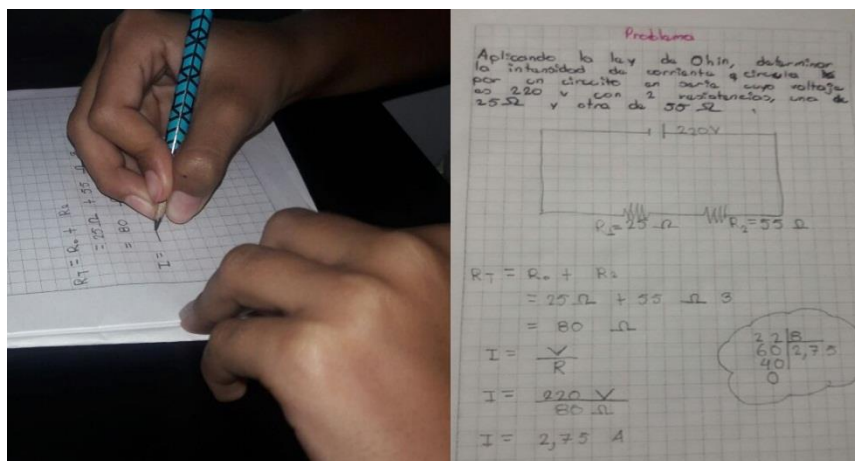 RT = Ro + R2
= 25 Ω + 55 Ω
= 80
I =
Problema
Aplicando la ley de Ohin, determinar
la intensidad de corriente q circula
por un circuito en serie cuyo voltaje
es 220 v con 2 resistencias, una de
25 Ω y otra de 55 Ω.
220V
R1= 25 Ω R2= 55 Ω
RT = Ro + R2
= 25 Ω + 55 Ω 3
= 80 Ω
I = V
R
I = 220 V
80 Ω
I = 2,75 A
22 8
60 2,75
40
0